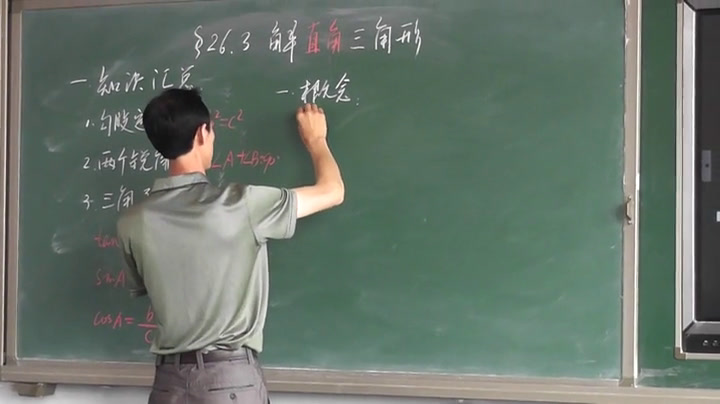 §26.3 解直角三角形
一 知识汇总
1. 勾股定 ²=c²
2. 两个锐 ∠A+∠B=90°
3. 三角
tan
sinA
cosA=b/c
一. 概念: